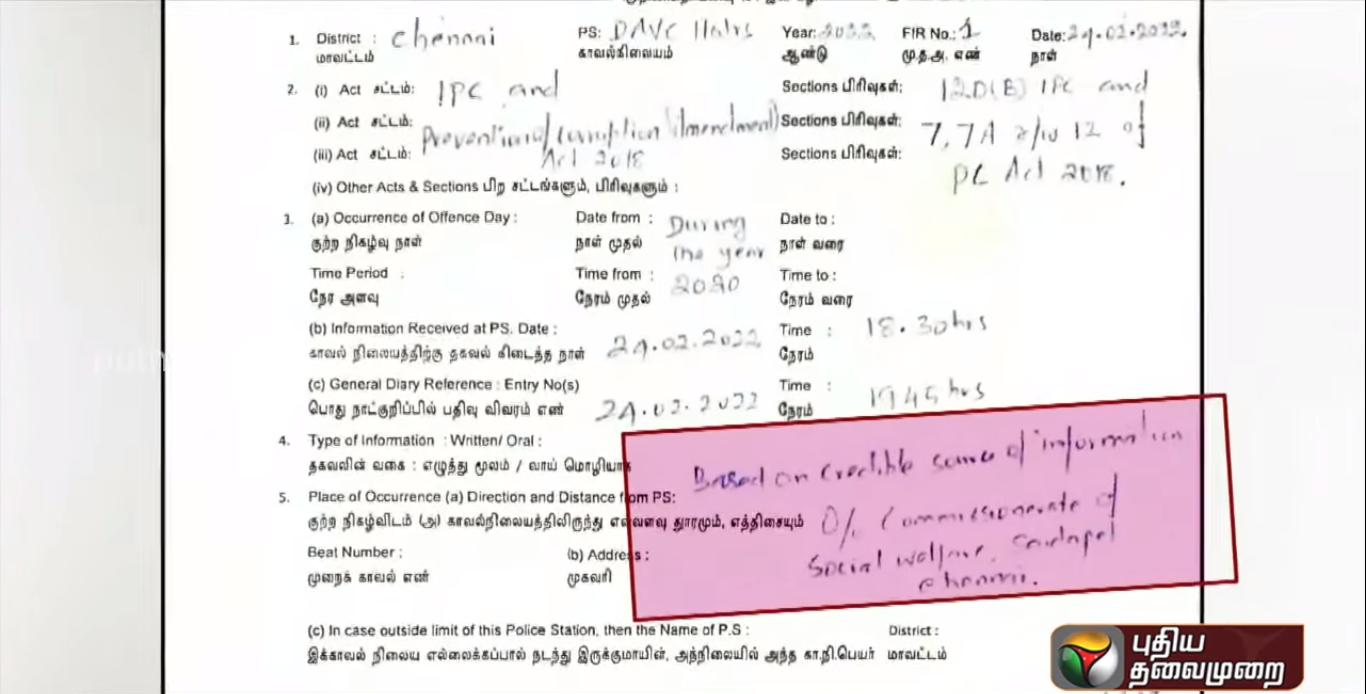 1. District : Chennai PS: DAVC Hqrs Year: 2022 FIR No.: 1 Date: 24.02.2022.
மாவட்டம் காவல்நிலையம் ஆண்டு மு.த.அ. எண் நாள்
2. (i) Act சட்டம்: IPC and Sections பிரிவுகள்: 120(B) IPC and
(ii) Act சட்டம்: Prevention of Corruption (Amendment) Sections பிரிவுகள்: 7, 7A r/w 12 of
(iii) Act சட்டம்: Act 2018 Sections பிரிவுகள்: PC Act 2018.
(iv) Other Acts & Sections பிற சட்டங்களும், பிரிவுகளும் :
3. (a) Occurrence of Offence Day : Date from : During Date to :
குற்ற நிகழ்வு நாள் நாள் முதல் the year நாள் வரை
Time Period : Time from : 2020 Time to :
நேர அளவு நேரம் முதல் நேரம் வரை
(b) Information Received at PS. Date : 24.02.2022 Time : 18.30hrs
காவல் நிலையத்திற்கு தகவல் கிடைத்த நாள் நேரம்
(c) General Diary Reference : Entry No(s) Time :
பொது நாட்குறிப்பில் பதிவு விவரம் எண் 24.02.2022 நேரம் 1945 hrs
4. Type of Information : Written/ Oral : Based on credible source of information
தகவலின் வகை : எழுத்து மூலம் / வாய் மொழியாக
5. Place of Occurrence (a) Direction and Distance from PS:
குற்ற நிகழ்விடம் (அ) காவல்நிலையத்திலிருந்து எவ்வளவு தூரமும், எத்திசையும் O/o Commissionerate of
Beat Number : (b) Address : Social welfare, Saidapet
முறைக் காவல் எண் முகவரி Chennai.
(c) In case outside limit of this Police Station, then the Name of P.S : District :
இக்காவல் நிலைய எல்லைக்கப்பால் நடந்து இருக்குமாயின், அந்நிலையில் அந்த கா.நி.பெயர் மாவட்டம்
புதிய
தலைமுறை